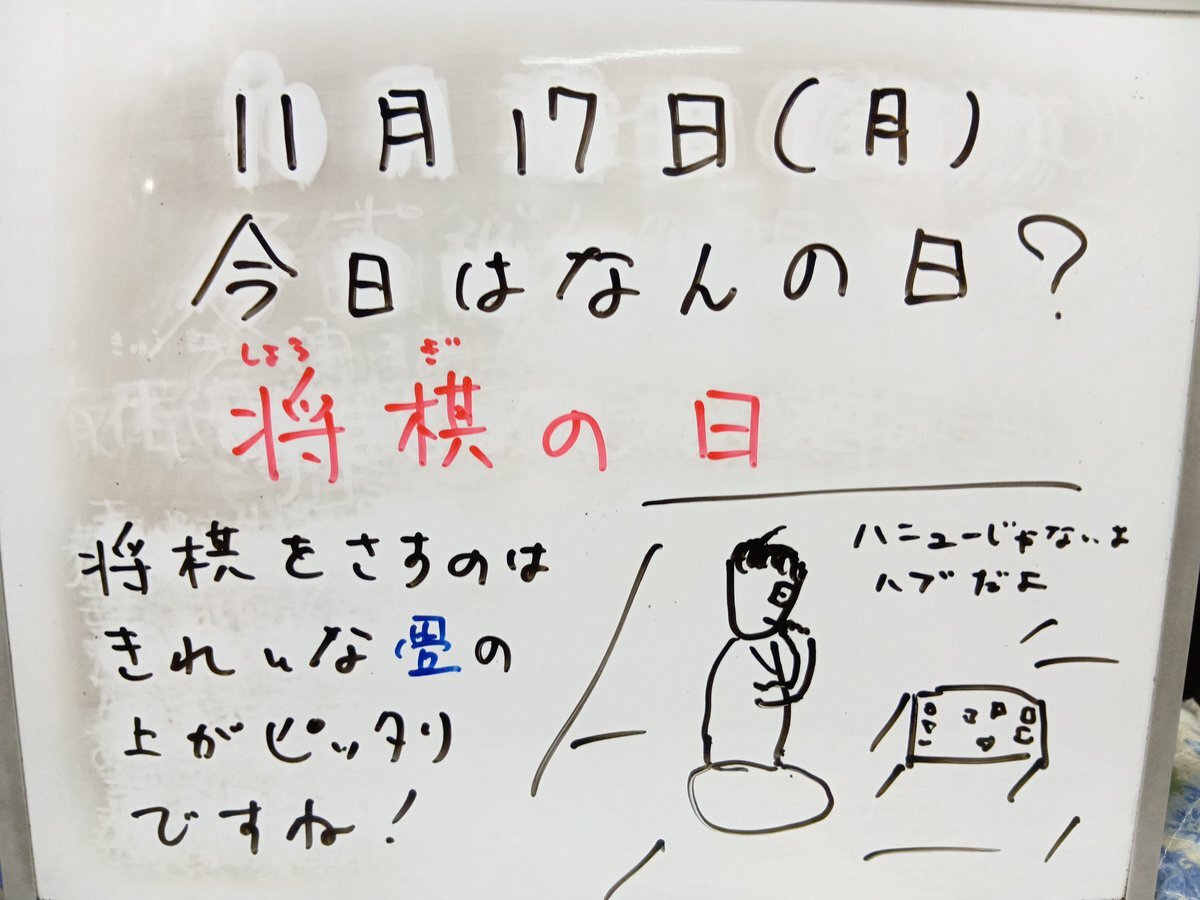 11月17日(月)
今日はなんの日?
しょう ぎ
将棋の日
将棋をさすのは
きれいな畳の
上がピッタリ
ですね!
ハニューじゃないよ
ハブだよ